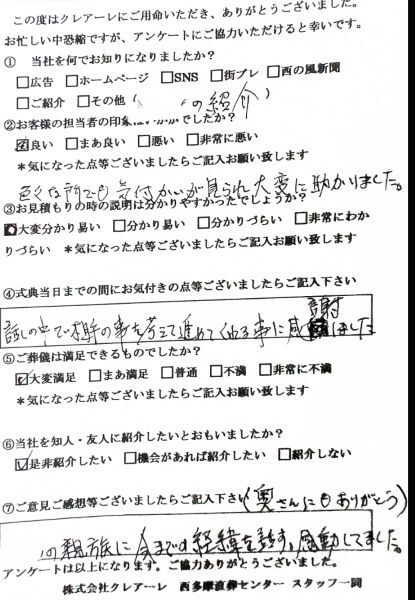 この度はクレアーレにご用命いただき、ありがとうございました。
お忙しい中恐縮ですが、アンケートにご協力いただけると幸いです。
① 当社を何でお知りになりましたか？
□広告 □ホームページ □SNS □街プレ □西の風新聞
□ご紹介 □その他（ の紹介）
②お客様の担当者の印象はいかがでしたか？
☑良い □まあ良い □悪い □非常に悪い
＊気になった点等ございましたらご記入お願い致します
色々な所でも気付かいが見られ大変に助かりました。
③お見積もりの時の説明は分かりやすかったでしょうか？
☑大変分かり易い □分かり易い □分かりづらい □非常にわか
りづらい ＊気になった点等ございましたらご記入お願い致します
④式典当日までの間にお気付きの点等ございましたらご記入下さい
話しの中で相手の事を考えて進めて 事に感謝しました
⑤ご葬儀は満足できるものでしたか？
☑大変満足 □まあ満足 □普通 □不満 □非常に不満
＊気になった点等ございましたらご記入お願い致します
⑥当社を知人・友人に紹介したいとおもいましたか？
☑是非紹介したい □機会があれば紹介したい □紹介しない
⑦ご意見ご感想等ございましたらご記入下さい（奥さんにもありがとう）
の親族に今までの経緯を話す、感動してました。
アンケートは以上になります。ご協力ありがとうございました。
株式会社クレアーレ 西多摩直葬センター スタッフ一同